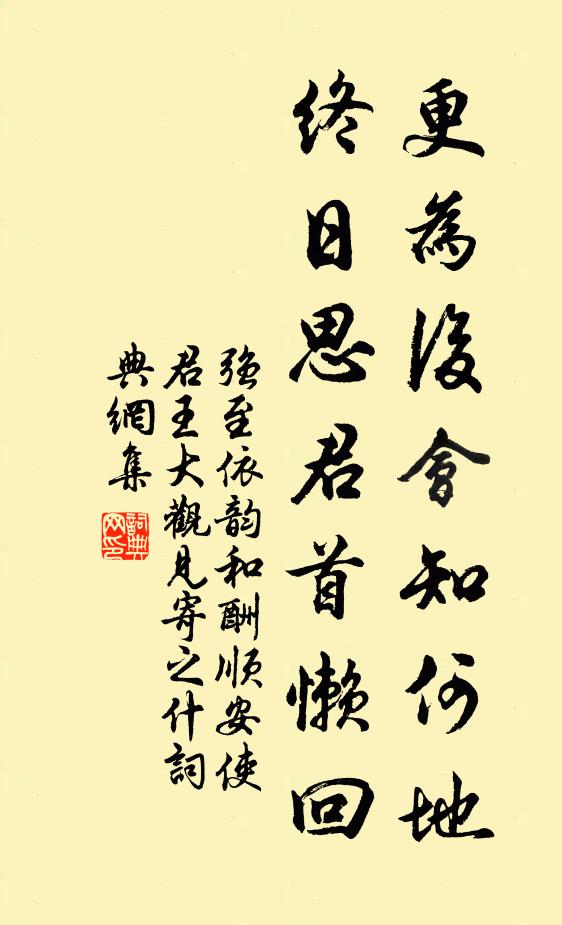 更為後會知何地
終日思君首懶回
强至依韵和酬順安使
君王大觀見寄之什詞
典網集
詞典
网印